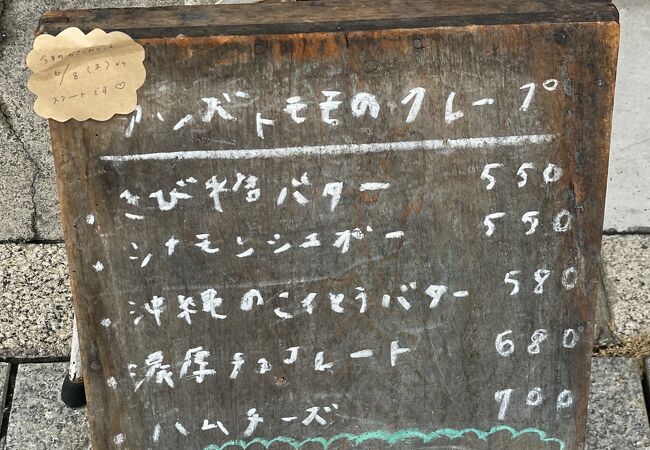 6/8(木)から
スタートです♡
カンズトモモのクレープ
きび糖バター 550
シナモンシュガー 550
沖縄のこくとうバター 580
濃厚チョコレート 680
ハムチーズ 700